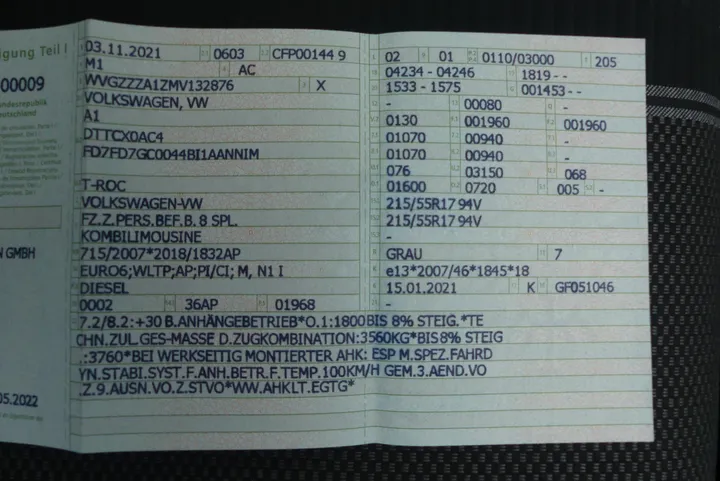 igung Teil I
00009
undesrepublik
eutschland
N GMBH
05.2022
03.11.2021 0603 CFP00144 9
M1 AC
WVGZZZA1ZMV132876 X
VOLKSWAGEN, VW
A1
DTTCX0AC4
FD7FD7GC0044BI1AANNIM
T-ROC
VOLKSWAGEN-VW
FZ.Z.PERS.BEF.B. 8 SPL.
KOMBILIMOUSINE
715/2007*2018/1832AP
EURO6;WLTP;AP;PI/CI; M, N1 I
DIESEL
0002 36AP 01968
02 01 0110/03000 205
04234 - 04246 1819 - -
1533 - 1575 001453 - -
- 00080 -
0130 001960 001960
01070 00940 -
01070 00940 -
076 03150 068
01600 0720 005 -
215/55R17 94V
215/55R17 94V
-
GRAU 7
e13*2007/46*1845*18
15.01.2021 K GF051046
-
7.2/8.2:+30 B.ANHÄNGEBETRIEB*O.1:1800BIS 8% STEIG.*TE
CHN.ZUL.GES-MASSE D.ZUGKOMBINATION:3560KG*BIS8% STEIG
.:3760*BEI WERKSEITIG MONTIERTER AHK: ESP M.SPEZ.FAHRD
YN.STABI.SYST.F.ANH.BETR.F.TEMP.100KM/H GEM.3.AEND.VO
.Z.9.AUSN.VO.Z.STVO*WW.AHKLT.EGTG*